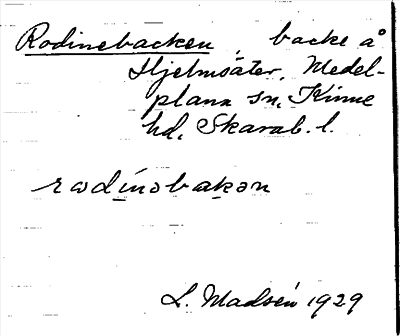 Rodinebacken, backe å
Hjelmsäter, Medel-
plana sn, Kinne
hd, Skarab. l.
rωdínəbakən
L. Madsén 1929